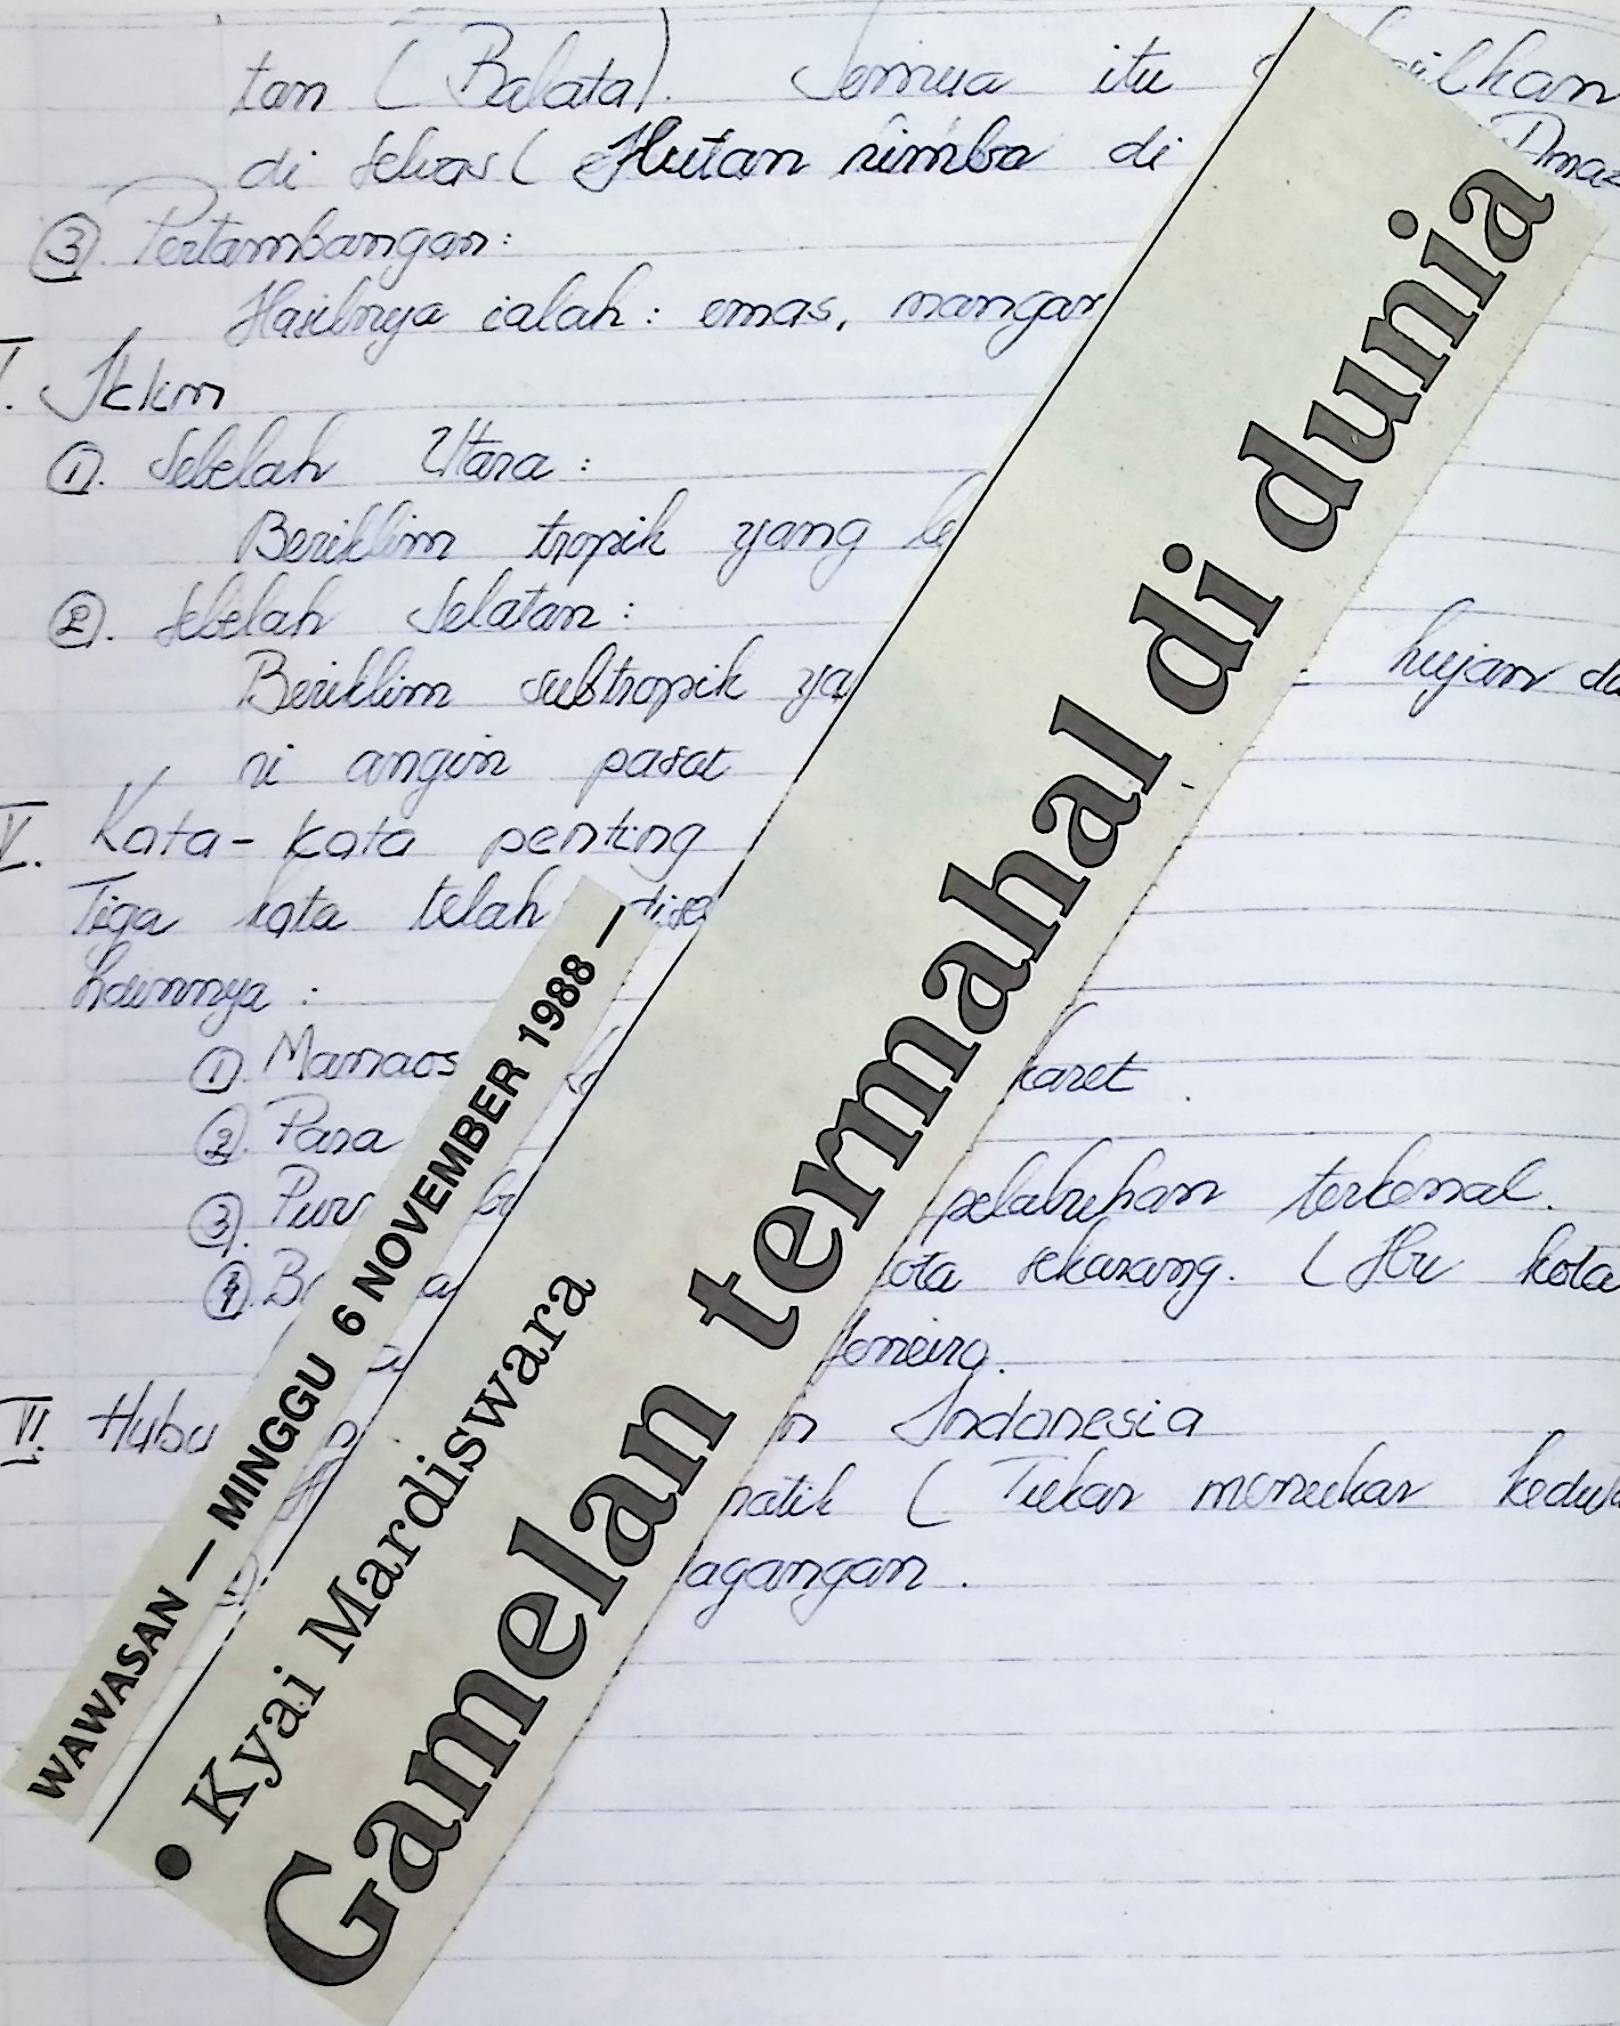 tan (Balata). Semua itu
di selvas (Hutan rimba di
③ Pertambangan:
Hasilnya ialah: emas, mangan
Iklim
①. Sebelah Utara:
Beriklim tropik yang
②. Sebelah Selatan:
Beriklim subtropik hujan
ri angin pasat
V. Kata-kata penting
Tiga kata telah
①. Manaos karet.
②. Para
③. pelabuhan terkenal.
④. sekarang. (Ibu kota
VI. Indonesia
(Tukar menukar
WAWASAN — MINGGU 6 NOVEMBER 1988 —
• Kyai Mardiswara
Gamelan termahal di dunia